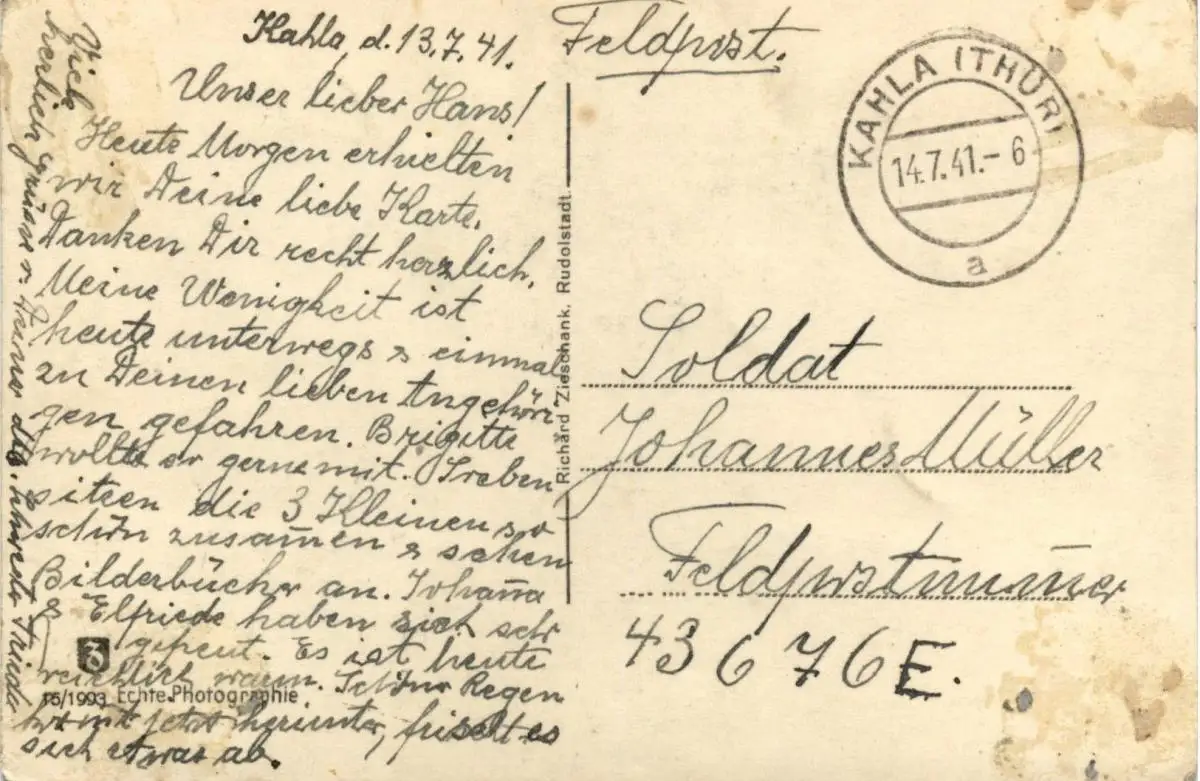 Kahla, d. 13.7.41.
Unser lieber Hans!
Heute Morgen erhielten
wir Deine liebe Karte.
Danken Dir recht herzlich.
Meine Wenigkeit ist
heute unterwegs & einmal
zu Deinen lieben Angehöri
gen gefahren. Brigitte
wollte so gerne mit. Soeben
sitzen die 3 Kleinen so
schön zusam̅en & sehen
Bilderbücher an. Johan̅a
& Elfriede haben sich sehr
gefreut. Es ist heute
reichlich warm. Schöner Regen
kom̅t jetzt herunter, frischt es
sich etwas ab.
Viele
herzlich Grüße v. Deiner
Frieda
Feldpost.
KAHLA (THÜR)
14.7.41.-6
a
Soldat
Johannes Müller
Feldpostnum̅er
43676E.
Richard Zieschank. Rudolstadt.
15/1993 Echte Photographie